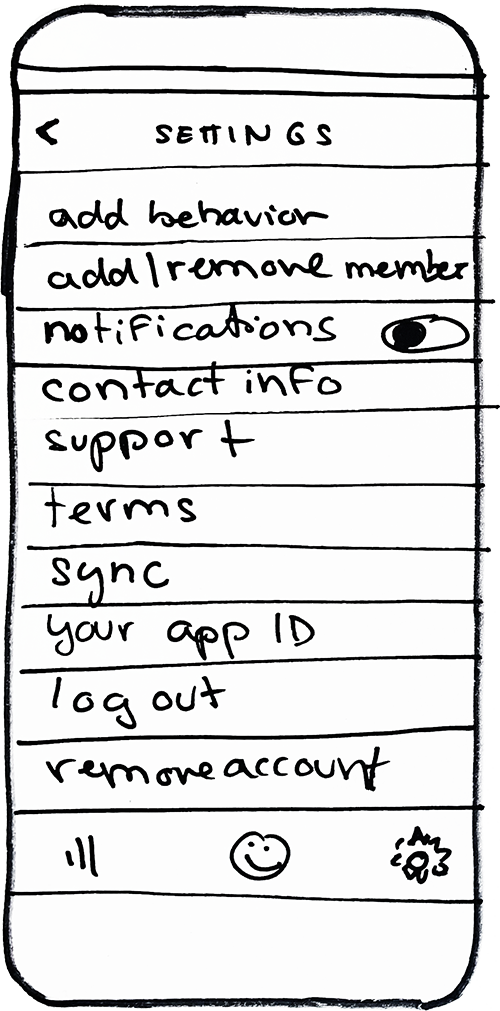 < SETTINGS
add behavior
add/remove member
notifications
contact info
support
terms
sync
your app ID
log out
remove account